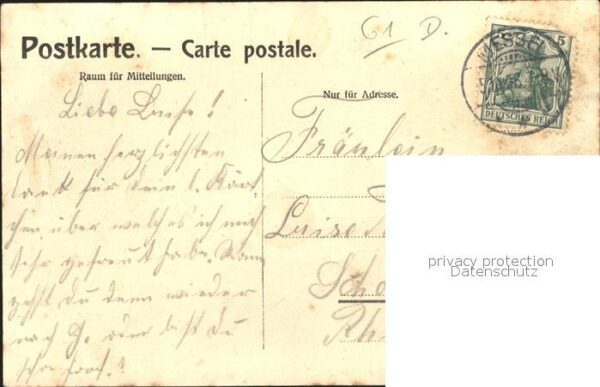 G1 D.
Postkarte. — Carte postale.
Raum für Mitteilungen.
Nur für Adresse.
MESSEL
5
DEUTSCHES REICH
Liebe Luise!
Meinen herzlichsten
Dank für dein l. Kärt-
chen über welches ich mich
sehr gefreut habe. Wann
gehst Du denn wieder
nach G. oder bist Du
schon fort?
Fräulein
Luise
Rh
privacy protection
Datenschutz